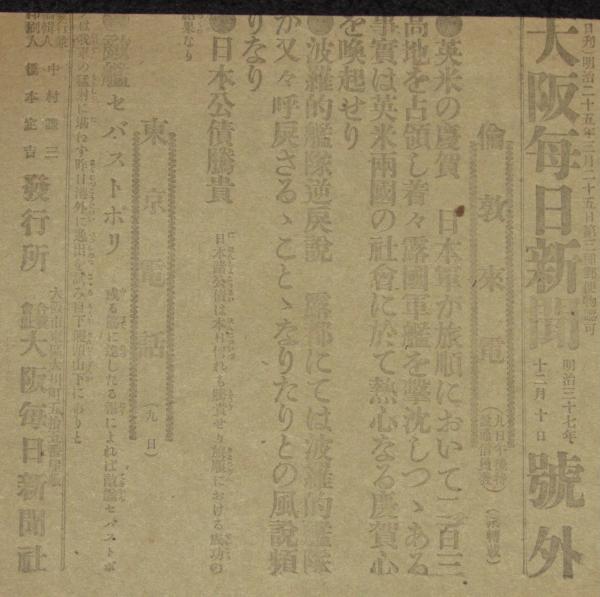 日刊明治二十五年三月二十五日第三種郵便物認可
大阪毎日新聞
明治三十七年
十二月十日
號外
倫敦來電
英米の慶賀　日本軍が旅順において二百三
高地を占領し着々露國軍艦を擊沈しつゝある
事實は英米兩國の社會に於て熱心なる慶賀心
を喚起せり
波羅的艦隊逆戻說　露都にては波羅的艦隊
が又々呼戻さるゝことゝなりたりとの風說頻
りなり
日本公債騰貴　日本諸公債は本日何れも騰貴せり旅順における成功の
結果なり
東京電話（九日）
敵艦セバストポリ　或る筋に達したる報によれば敵艦セバストポ
は我軍の猛射に堪わず昨日港外に逸出を試み目下城頭山下にありと
中村
橋本
發行所
大阪毎日新聞社